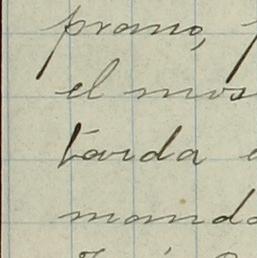 prano,
el mos
tarda e
manda